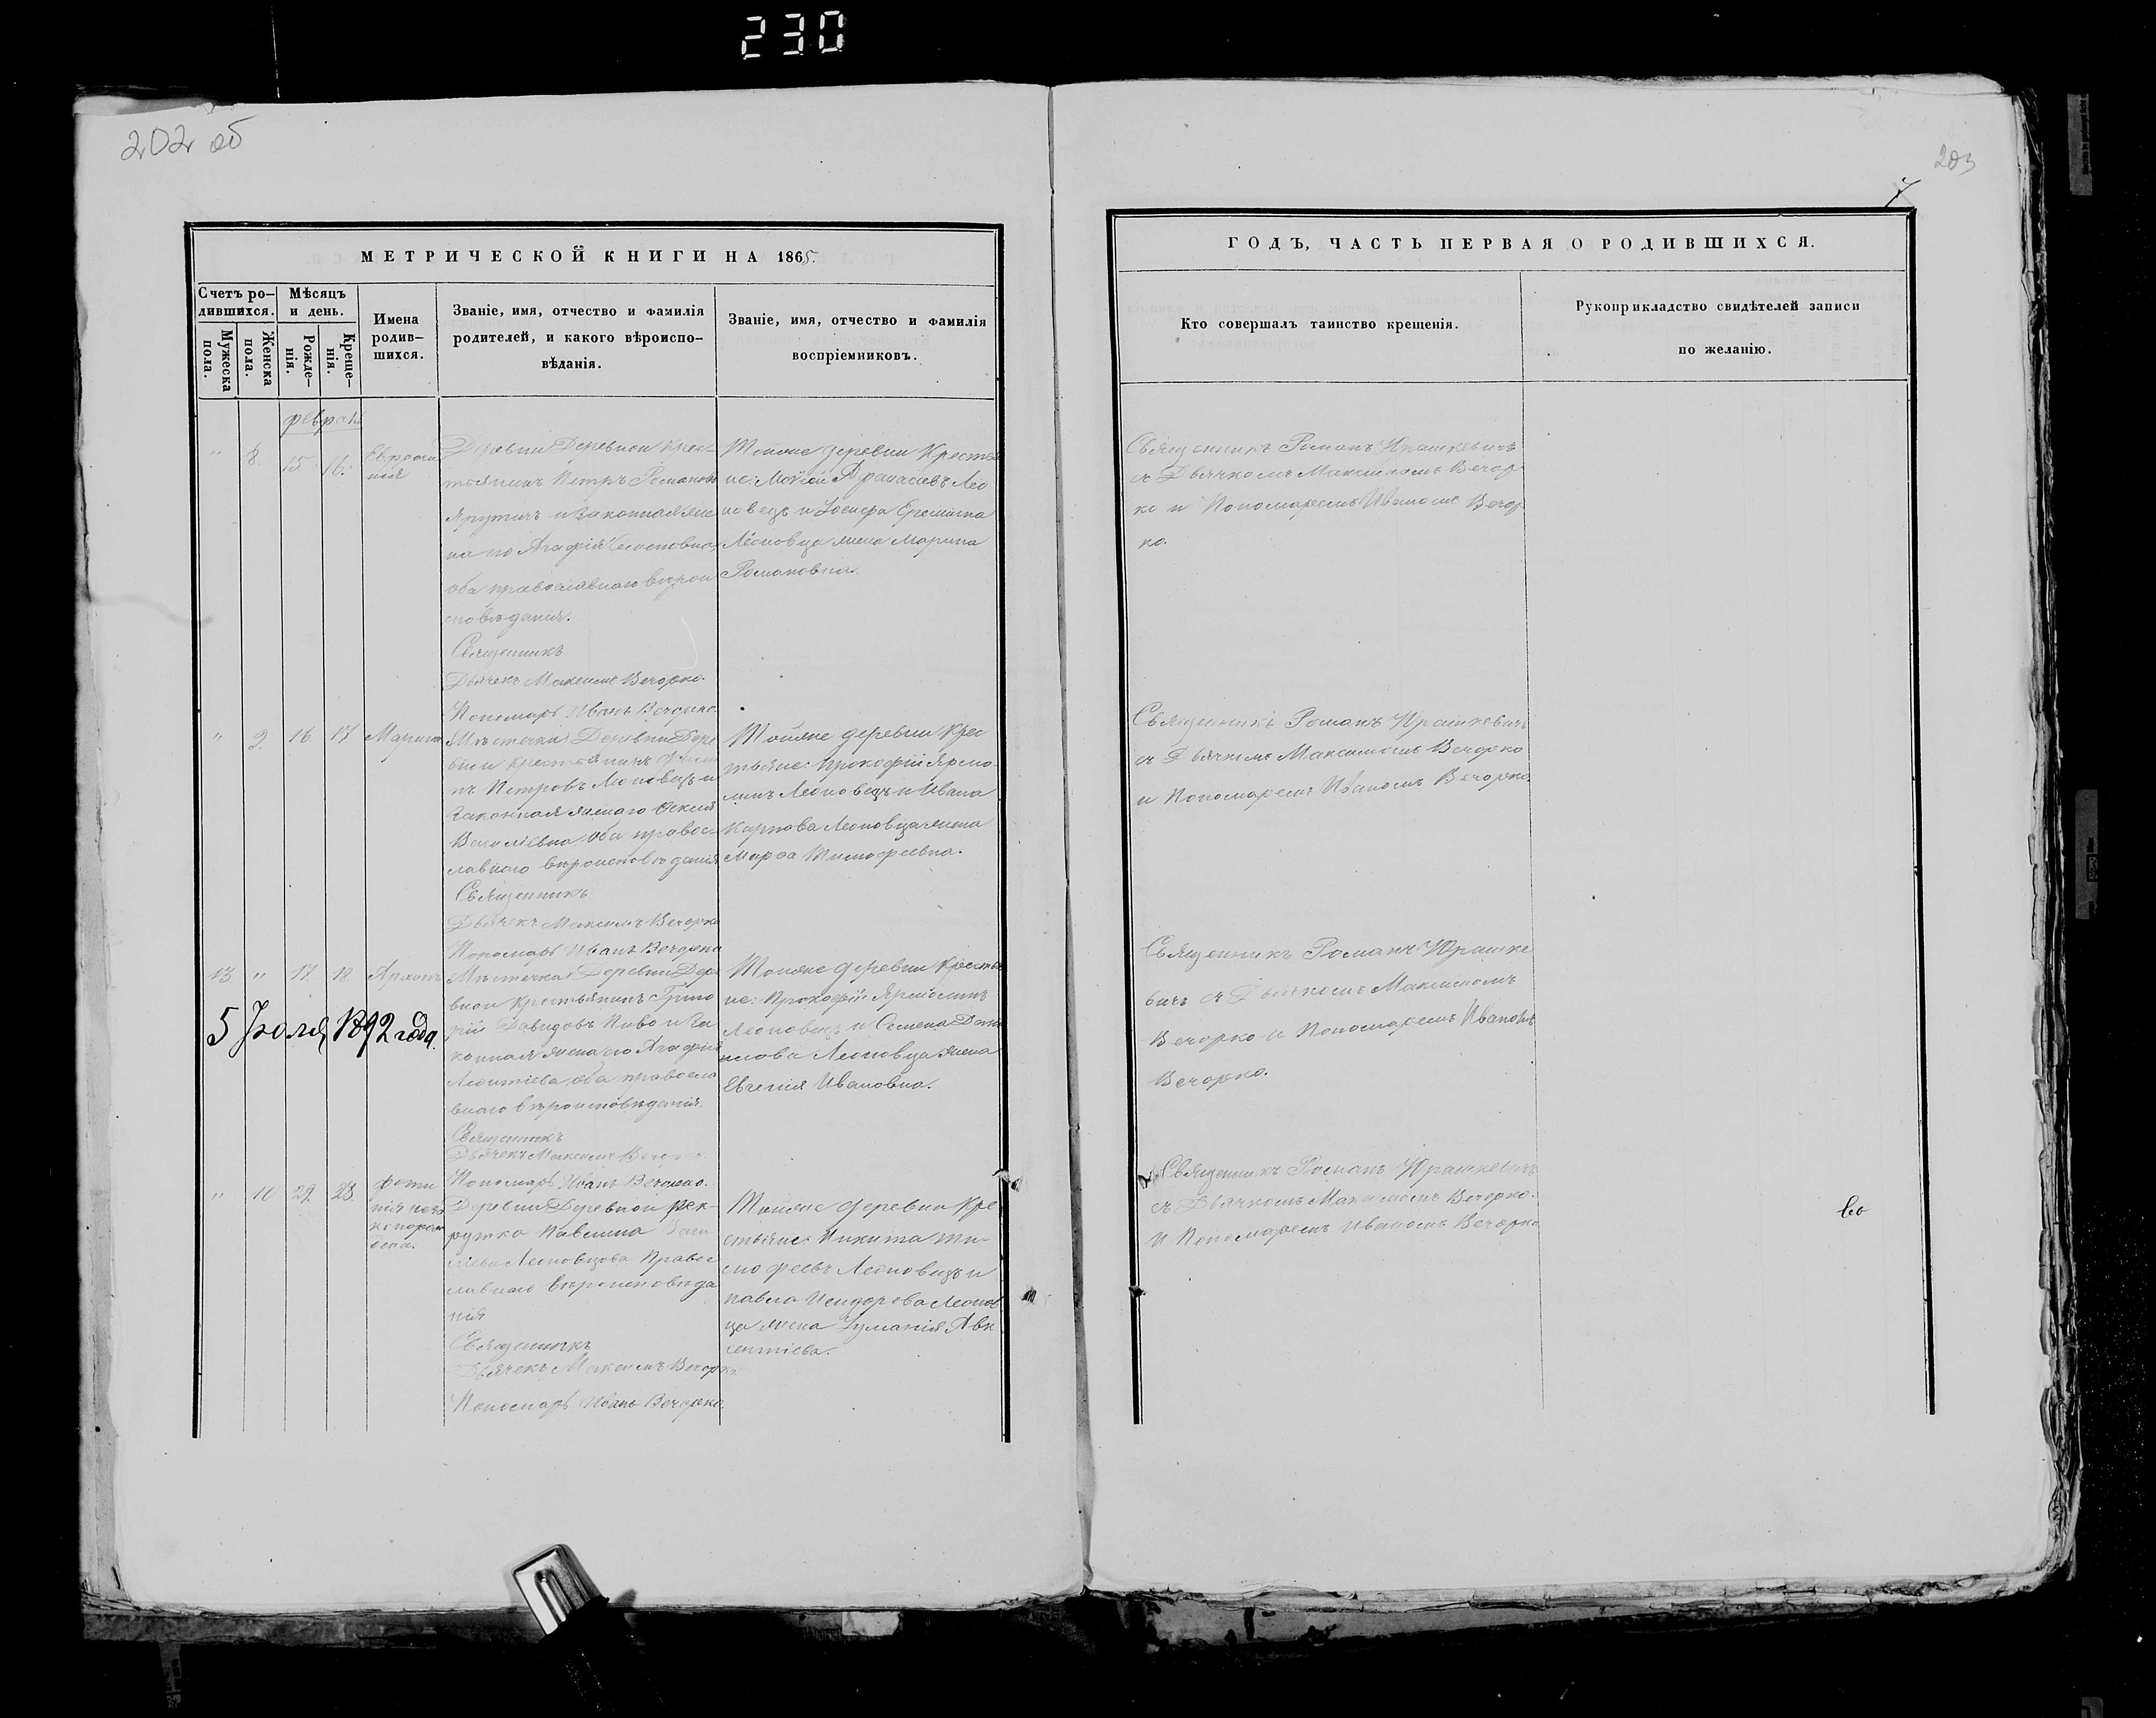 230
202 об
203
7
МЕТРИЧЕСКОЙ КНИГИ НА 1865.
Счетъ ро-
дившихся.
Мужеска
пола.
Женска
пола.
Мѣсяцъ
и день.
Рожде-
нія.
Креще-
нія.
Имена
родив-
шихся.
Званіе, имя, отчество и фамилія
родителей, и какого вѣроиспо-
вѣданія.
Званіе, имя, отчество и фамилія
воспріемниковъ.
ГОДЪ, ЧАСТЬ ПЕРВАЯ О РОДИВШИХСЯ.
Кто совершалъ таинство крещенія.
Рукоприкладство свидѣтелей записи
по желанію.
8. 15. 16.
Деревни Деревной Крес-
тьянинъ Петръ Романовъ
и законная же-
на его Агафія
оба православнаго вѣрои
сповѣданія.
Священникъ
Дьячекъ Максимъ Вечорко.
Пономарь Иванъ Вечорко
Тойже деревни Крестья
не: Мокей Афанасіевъ Лео
новецъ и Іосифа Еремина
Леоновца жена Марина
Романовна.
Священникъ Романъ Юрашкевичъ
съ Дьячкомъ Максимомъ Вечор
ко и Пономаремъ Иваномъ Вечор
ко.
" 9. 16. 17
Мѣстечка Деревни Дере
вной крестьянинъ
Петровъ Леоновецъ и
законная жена его
Василіевна оба правос
лавнаго вѣроисповѣданія
Священникъ
Дьячекъ Максимъ Вечорко
Пономарь Иванъ Вечорко
Тойже деревни Крес
тьяне: Прокофій Ярмо
линъ Леоновецъ и Ивана
Карпова Леоновца жена
Марфа Тимофеевна.
Священникъ Романъ Юрашкевичъ
съ Дьячкомъ Максимомъ Вечорко
и Пономаремъ Иваномъ Вечорко.
13 " 17. 18
5 Іюля, 1892 года.
Мѣстечка Деревни Дере
вной Крестьянинъ Григо
рій Давидовъ Пиво и за
конная жена его Агафія
Леонтіева оба правосла
внаго вѣроисповѣданія.
Священникъ
Дьячекъ Максимъ Вечорко
Пономарь Иванъ Вечорко.
Тойже деревни Крестья
не: Прокофій Ярмолинъ
Леоновецъ и Семена Дани
лова Леоновца жена
Евгенія Ивановна.
Священникъ Романъ Юрашке
вичъ съ Дьячкомъ Максимомъ
Вечорко и Пономаремъ Иваномъ
Вечорко.
" 10 22. 23.
Деревни Деревной рек-
рутка Павлина
Леоновцова Правос
лавнаго вѣроисповѣда
нія
Священникъ
Дьячекъ Максимъ Вечорко
Пономарь Иванъ Вечорко.
Тойже деревни Кре
стьяне: Никита Ти-
мофеевъ Леоновецъ и
Павла Исидорова Леонов
ца жена Іуманія Авк
сентіева.
Священникъ Романъ Юрашкевичъ
съ Дьячкомъ Максимомъ Вечорко.
и Пономаремъ Иваномъ Вечорко